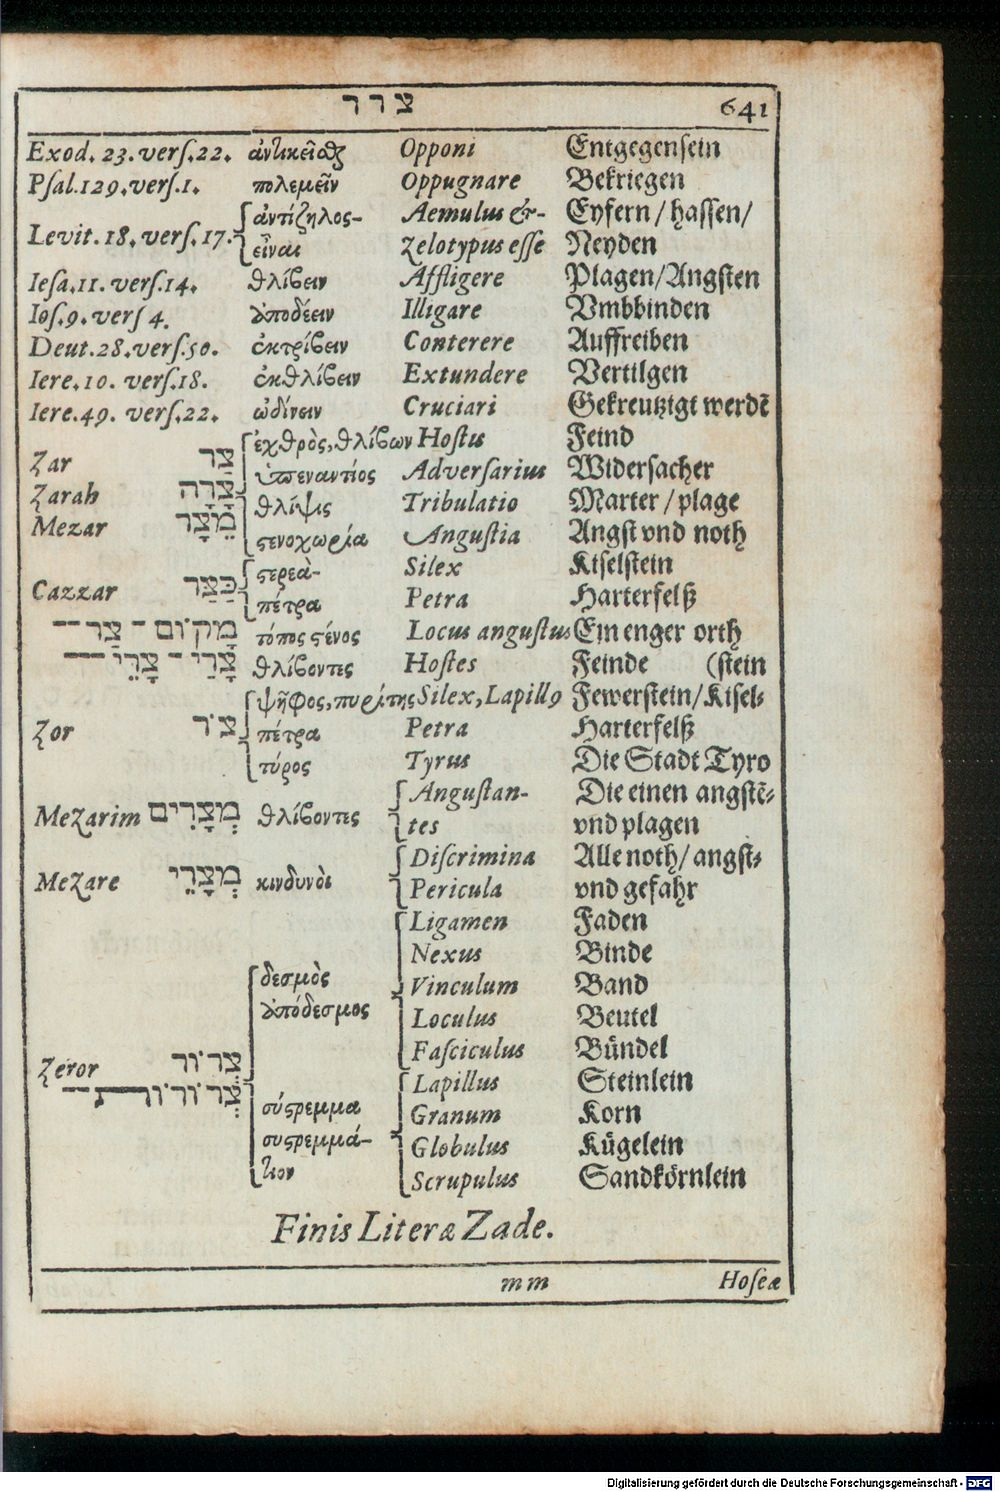 צרר 641
Exod. 23. verſ. 22. ἀντικεῖσθαι Opponi Entgegenſein
Pſal. 129. verſ. 1. πολεμεῖν Oppugnare Bekriegen
Levit. 18. verſ. 17. ἀντίζηλος- Aemulus &- Eyfern / haſſen /
εἶναι zelotypus eſſe Neyden
Ieſa. 11. verſ. 14. θλίβειν Affligere Plagen/Angſten
Ioſ. 9. verſ 4. ἀποδέειν Illigare Vmbbinden
Deut. 28. verſ. 50. ἐκτρίβειν Conterere Auffreiben
Iere. 10. verſ. 18. ἐκθλίβειν Extundere Vertilgen
Iere. 49. verſ. 22. ὠδίνειν Cruciari Gekreutzigt werdē
ἐχθρὸς, θλίβων Hoſtis Feind
Zar צַר ὑπεναντίος Adverſarius Widerſacher
Zarah צָרָה θλίψις Tribulatio Marter / plage
Mezar מֵצַר ϛενοχωρία Anguſtia Angſt vnd noth
ϛερεὰ- Silex Kiſelſtein
Cazzar כַּצַּר πέτρα Petra Harterfelß
מָקוֹם - צַר -- τόπος ϛένος Locus anguſtus Ein enger orth
צָרַי - צָרֵי --- θλίβοντες Hoſtes Feinde (ſtein
ψῆφος, πυρίτης Silex, Lapillꝰ Fewerſtein/Kiſel-
Zor צֹר πέτρα Petra Harterfelß
τύρος Tyrus Die Stadt Tyro
Anguſtan- Die einen angſtē-
Mezarim מְצָרִים θλίβοντες tes vnd plagen
Diſcrimina Alle noth/ angſt-
Mezare מְצָרֵי κινδυνοὶ Pericula vnd gefahr
Ligamen Faden
Nexus Binde
δεσμὸς Vinculum Band
ἀπόδεσμος Loculus Beutel
Faſciculus Bündel
Zeror צְרוֹר Lapillus Steinlein
צְרוֹרוֹת-- σύϛρεμμα Granum Korn
συϛρεμμά- Globulus Kügelein
τιον Scrupulus Sandkörnlein
Finis Literæ Zade.
mm Hoſeæ
Digitalisierung gefördert durch die Deutsche Forschungsgemeinschaft - DFG